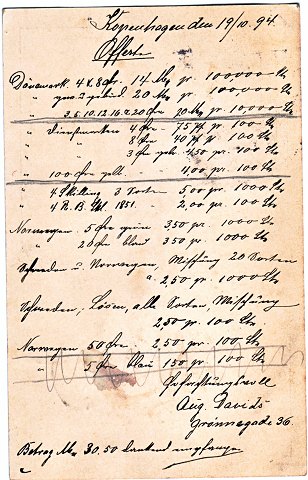 Kopenhagen den 19/10. 94.
Offert.
Dänemark. 4 & 8 Øre. 14 Mk pr. 100000 St.
" 20 Mk pr. 100000 St.
" 3.5.10.12.16 & 20 Øre 20 Mk pr. 10000 St.
" Dienstmarken 4 Øre. 75 pf. pr. 100 St.
" 8 Øre 40 pf. pr. 100 St.
" 3 Øre gelb. 4.50 pr. 100 St.
" 100 Øre gelb. 4.00 pr. 100 St.
" 4 Skilling 3 Sorten 5.00 pr. 1000 St.
" 4 R. B. Sk. 1851. 2.00 pr. 100 St.
Norwegen. 5 Øre grün 3.50 pr. 1000 St.
" 20 Øre blau 3.50 pr. 1000 St.
Schweden u. Norwegen, Mischung 20 Sorten
a. 2,50 pr. 1000 St.
Schweden, Lösen, alle Sorten, Mischung
2,50 pr. 100 St.
Norwegen 50 Øre. 2,50 pr. 100 St.
" 5 Øre blau 1.50 pr. 100 St.
Hochachtungsvoll
Aug. Davids
Grønnegade 36.
Betrag Mk. 30.50 dankend empfangen